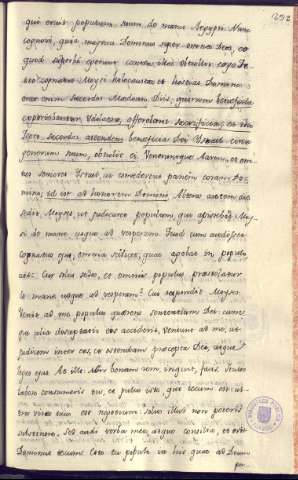 252
qui eruit populum suum, de manu Aegypti. Nunc
cognovi, quia magnus Dominus super omnes Deos, eo
quod superbe egerint contra illos. Obtulit ergo Je
tro cognatus Moysi holocausta et hostias
erat enim sacerdos Madian Dei, quorum beneficia
sacrificia, et
Jetro sacerdos beneficia Dei Israel
generum suum, obtulit ei. Veneruntque Aaron, et om
nes seniores Israel, ut comederent panem coram Do
mino, id est ad honorem Domini. Altera autem die
sedit Moyses, ut judicaret populum, qui assistebat Moy
si de mane usque ad vesperam. Quod cum vidisset
cognatus ejus, omnia scilicet, quae agebat in popul
ait: Cur solus sedes, et omnis populus praestolatur
de mane usque ad vesperam? Cui respondit Moyses:
Venit ad me populus quaerens sententiam Dei: cum
illis disceptatio acciderit, veniunt ad me, ut
judicem inter eos, et ostendam praecepta Dei, et
leges ejus. At ille: Non bonam rem inquit, facis: stulto
labore consumeris tu, et populus iste, qui tecum est: ul
tra vires tuas est negotium, solus illud non poteris
sustinere. Sed audi verba mea, atque consilia, et erit
Dominus tecum: Esto tu populo in his quae ad Deum
per